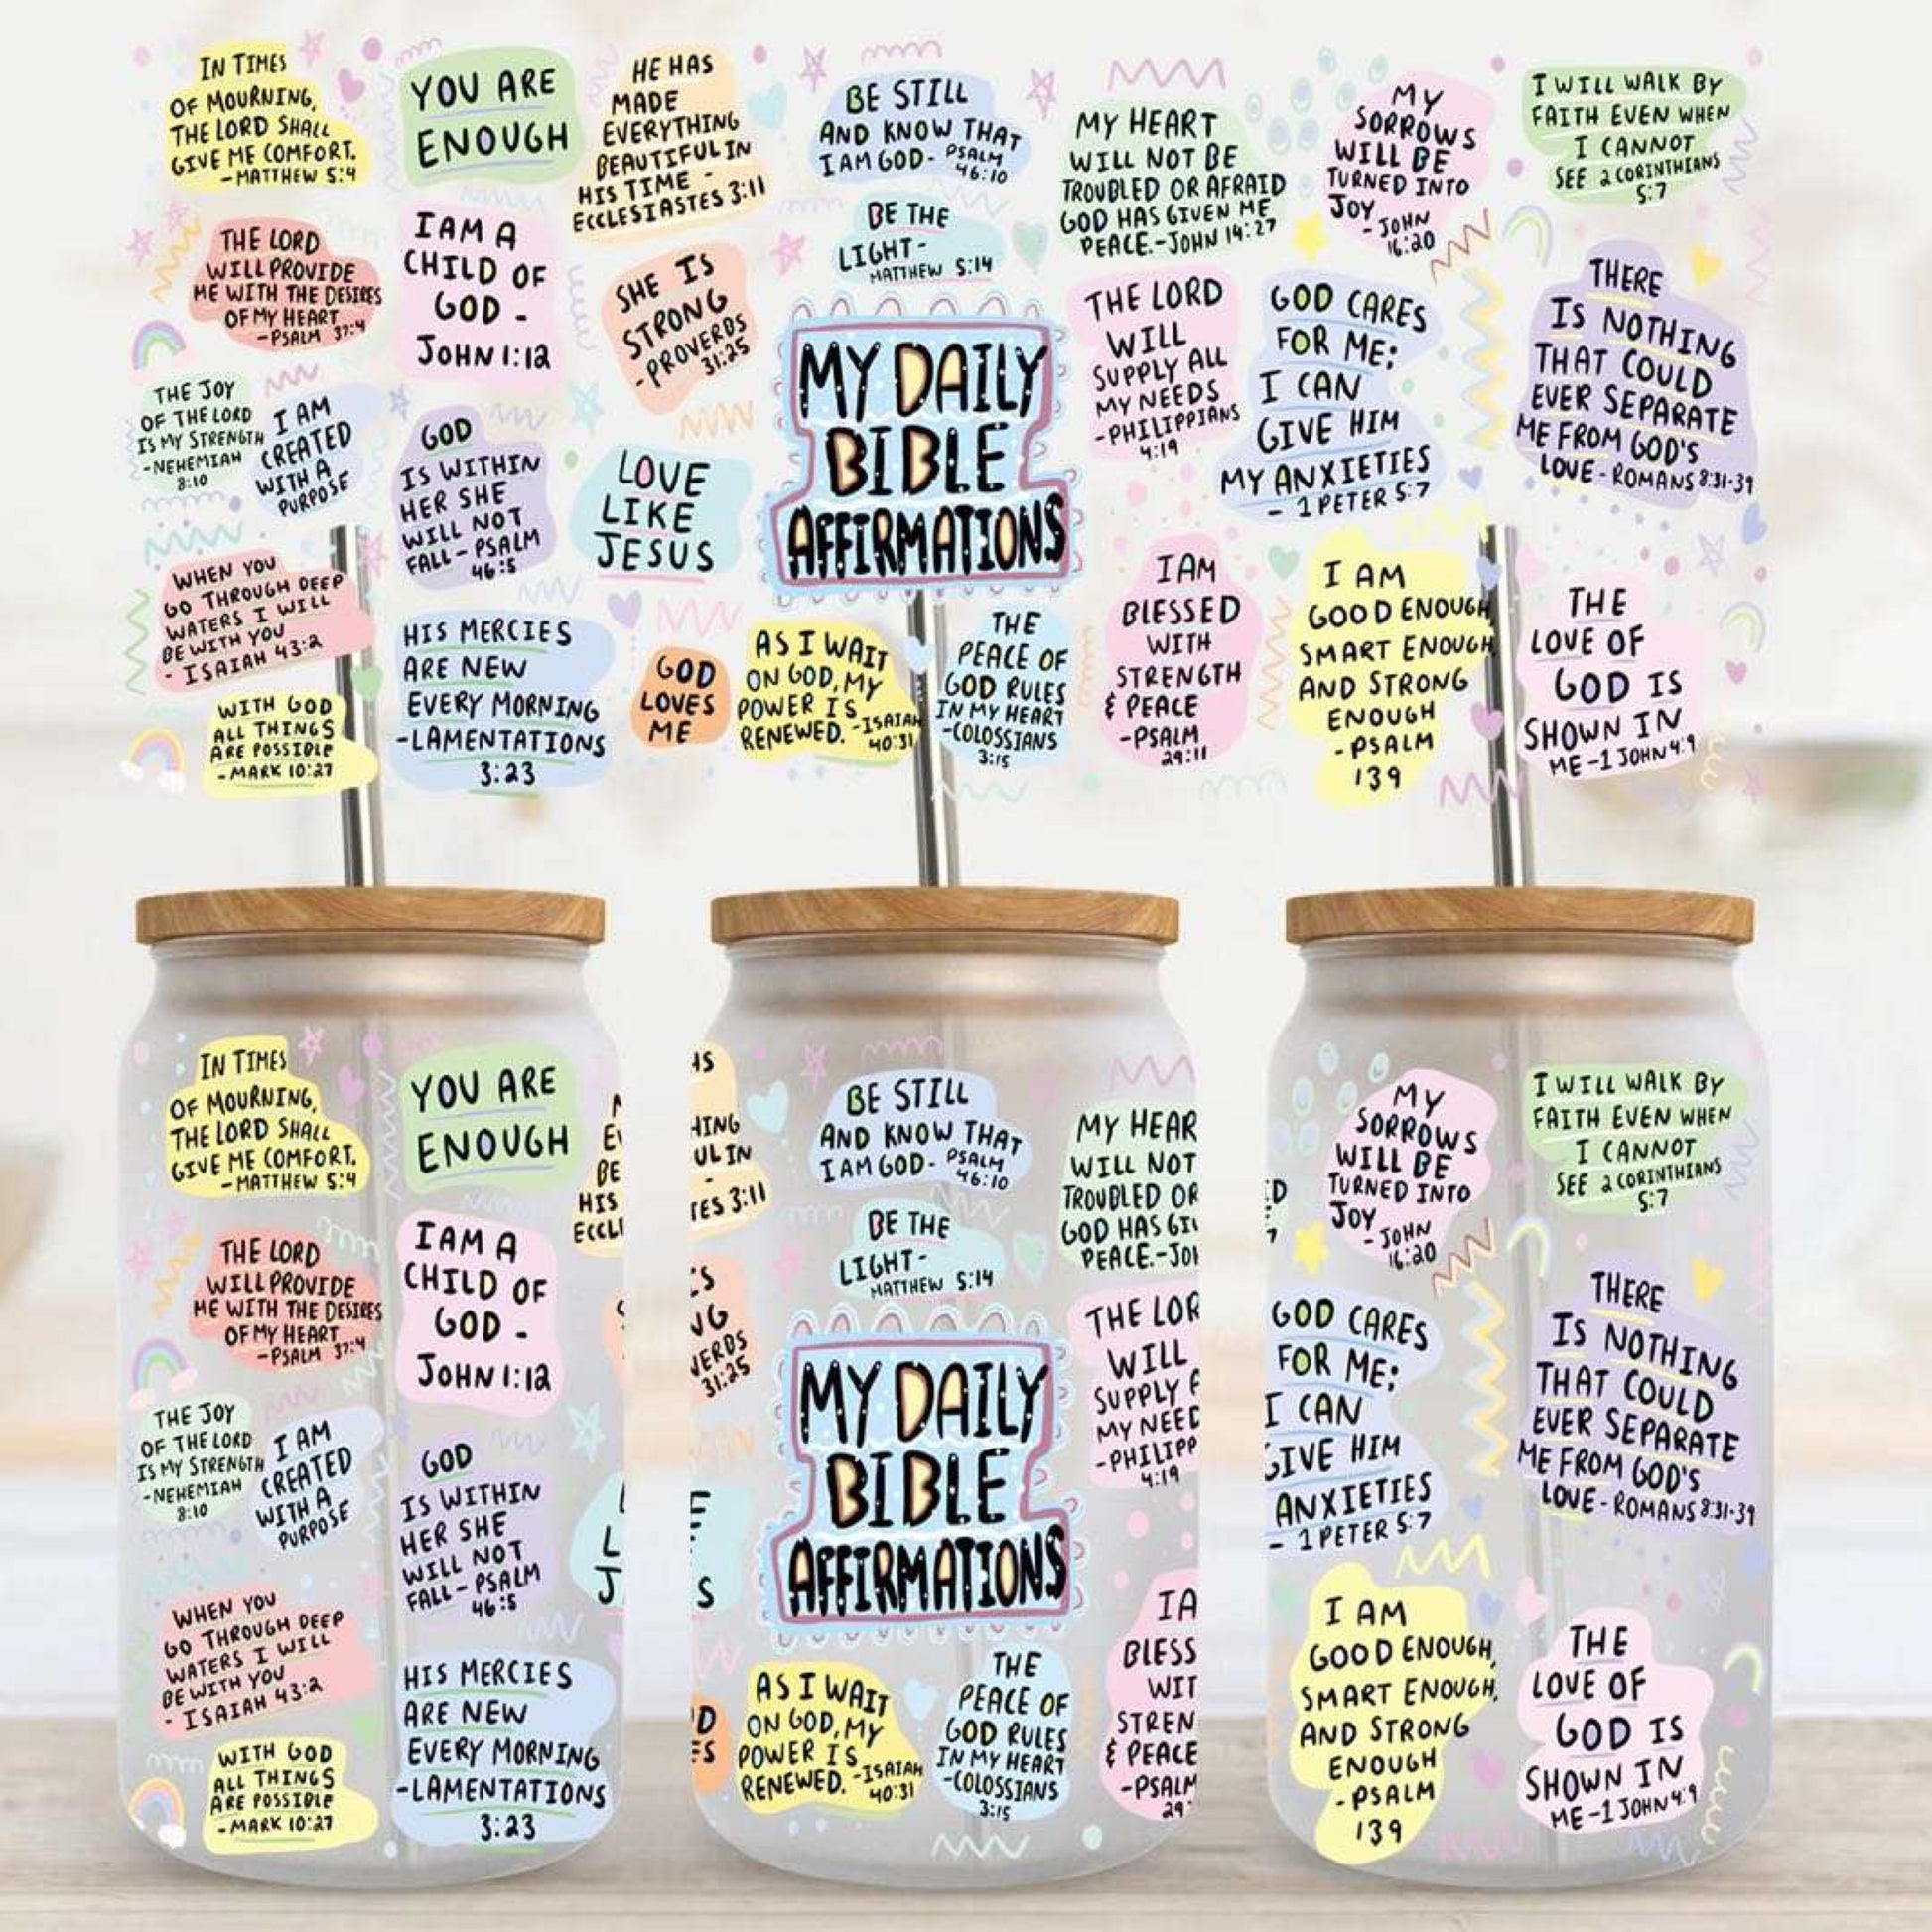 IN TIMES
OF MOURNING,
THE LORD SHALL
GIVE ME COMFORT.
-MATTHEW 5:4
YOU ARE
ENOUGH
HE HAS
MADE
EVERYTHING
BEAUTIFUL IN
HIS TIME -
ECCLESIASTES 3:11
BE STILL
AND KNOW THAT
I AM GOD- PSALM
46:10
MY HEART
WILL NOT BE
TROUBLED OR AFRAID
GOD HAS GIVEN ME
PEACE.-JOHN 14:27
MY
SORROWS
WILL BE
TURNED INTO
JOY
- JOHN
16:20
I WILL WALK BY
FAITH EVEN WHEN
I CANNOT
SEE 2 CORINTHIANS
5:7
THE LORD
WILL PROVIDE
ME WITH THE DESIRES
OF MY HEART
-PSALM 37:4
I AM A
CHILD OF
GOD -
JOHN 1:12
SHE IS
STRONG
- PROVERBS
31:25
BE THE
LIGHT-
MATTHEW 5:14
MY DAILY
BIBLE
AFFIRMATIONS
THE LORD
WILL
SUPPLY ALL
MY NEEDS
-PHILIPPIANS
4:19
GOD CARES
FOR ME;
I CAN
GIVE HIM
MY ANXIETIES
- 1 PETER 5:7
THERE
IS NOTHING
THAT COULD
EVER SEPARATE
ME FROM GOD'S
LOVE - ROMANS 8:31-39
THE JOY
OF THE LORD
IS MY STRENGTH
-NEHEMIAH
8:10
I AM
CREATED
WITH A
PURPOSE
GOD
IS WITHIN
HER SHE
WILL NOT
FALL - PSALM
46:5
LOVE
LIKE
JESUS
WHEN YOU
GO THROUGH DEEP
WATERS I WILL
BE WITH YOU
- ISAIAH 43:2
WITH GOD
ALL THINGS
ARE POSSIBLE
- MARK 10:27
HIS MERCIES
ARE NEW
EVERY MORNING
-LAMENTATIONS
3:23
GOD
LOVES
ME
AS I WAIT
ON GOD, MY
POWER IS
RENEWED. -ISAIAH
40:31
THE
PEACE OF
GOD RULES
IN MY HEART
-COLOSSIANS
3:15
I AM
BLESSED
WITH
STRENGTH
& PEACE
-PSALM
29:11
I AM
GOOD ENOUGH
SMART ENOUGH
AND STRONG
ENOUGH
- PSALM
139
THE
LOVE OF
GOD IS
SHOWN IN
ME -1 JOHN 4:9
IN TIMES
OF MOURNING,
THE LORD SHALL
GIVE ME COMFORT.
-MATTHEW 5:4
YOU ARE
ENOUGH
BE
HIS
ECCLE
THE LORD
WILL PROVIDE
ME WITH THE DESIRES
OF MY HEART
-PSALM 37:4
I AM A
CHILD OF
GOD -
JOHN 1:12
THE JOY
OF THE LORD
IS MY STRENGTH
-NEHEMIAH
8:10
I AM
CREATED
WITH A
PURPOSE
GOD
IS WITHIN
HER SHE
WILL NOT
FALL - PSALM
46:5
L
J
WHEN YOU
GO THROUGH DEEP
WATERS I WILL
BE WITH YOU
- ISAIAH 43:2
WITH GOD
ALL THINGS
ARE POSSIBLE
- MARK 10:27
HIS MERCIES
ARE NEW
EVERY MORNING
-LAMENTATIONS
3:23
HING
UL IN
TES 3:11
BE STILL
AND KNOW THAT
I AM GOD- PSALM
46:10
MY HEAR
WILL NOT
TROUBLED OR
GOD HAS GIV
PEACE.-JOH
VERDS
31:25
BE THE
LIGHT-
MATTHEW 5:14
MY DAILY
BIBLE
AFFIRMATIONS
THE LOR
WILL
SUPPLY A
MY NEED
-PHILIPP
4:19
S
AS I WAIT
ON GOD, MY
POWER IS
RENEWED. -ISAIAH
40:31
THE
PEACE OF
GOD RULES
IN MY HEART
-COLOSSIANS
3:15
IA
BLESS
WIT
STREN
& PEACE
-PSALM
29:
MY
SORROWS
WILL BE
TURNED INTO
JOY
- JOHN
16:20
I WILL WALK BY
FAITH EVEN WHEN
I CANNOT
SEE 2 CORINTHIANS
5:7
GOD CARES
FOR ME;
I CAN
GIVE HIM
ANXIETIES
- 1 PETER 5:7
THERE
IS NOTHING
THAT COULD
EVER SEPARATE
ME FROM GOD'S
LOVE - ROMANS 8:31-39
I AM
GOOD ENOUGH,
SMART ENOUGH,
AND STRONG
ENOUGH
- PSALM
139
THE
LOVE OF
GOD IS
SHOWN IN
ME -1 JOHN 4:9